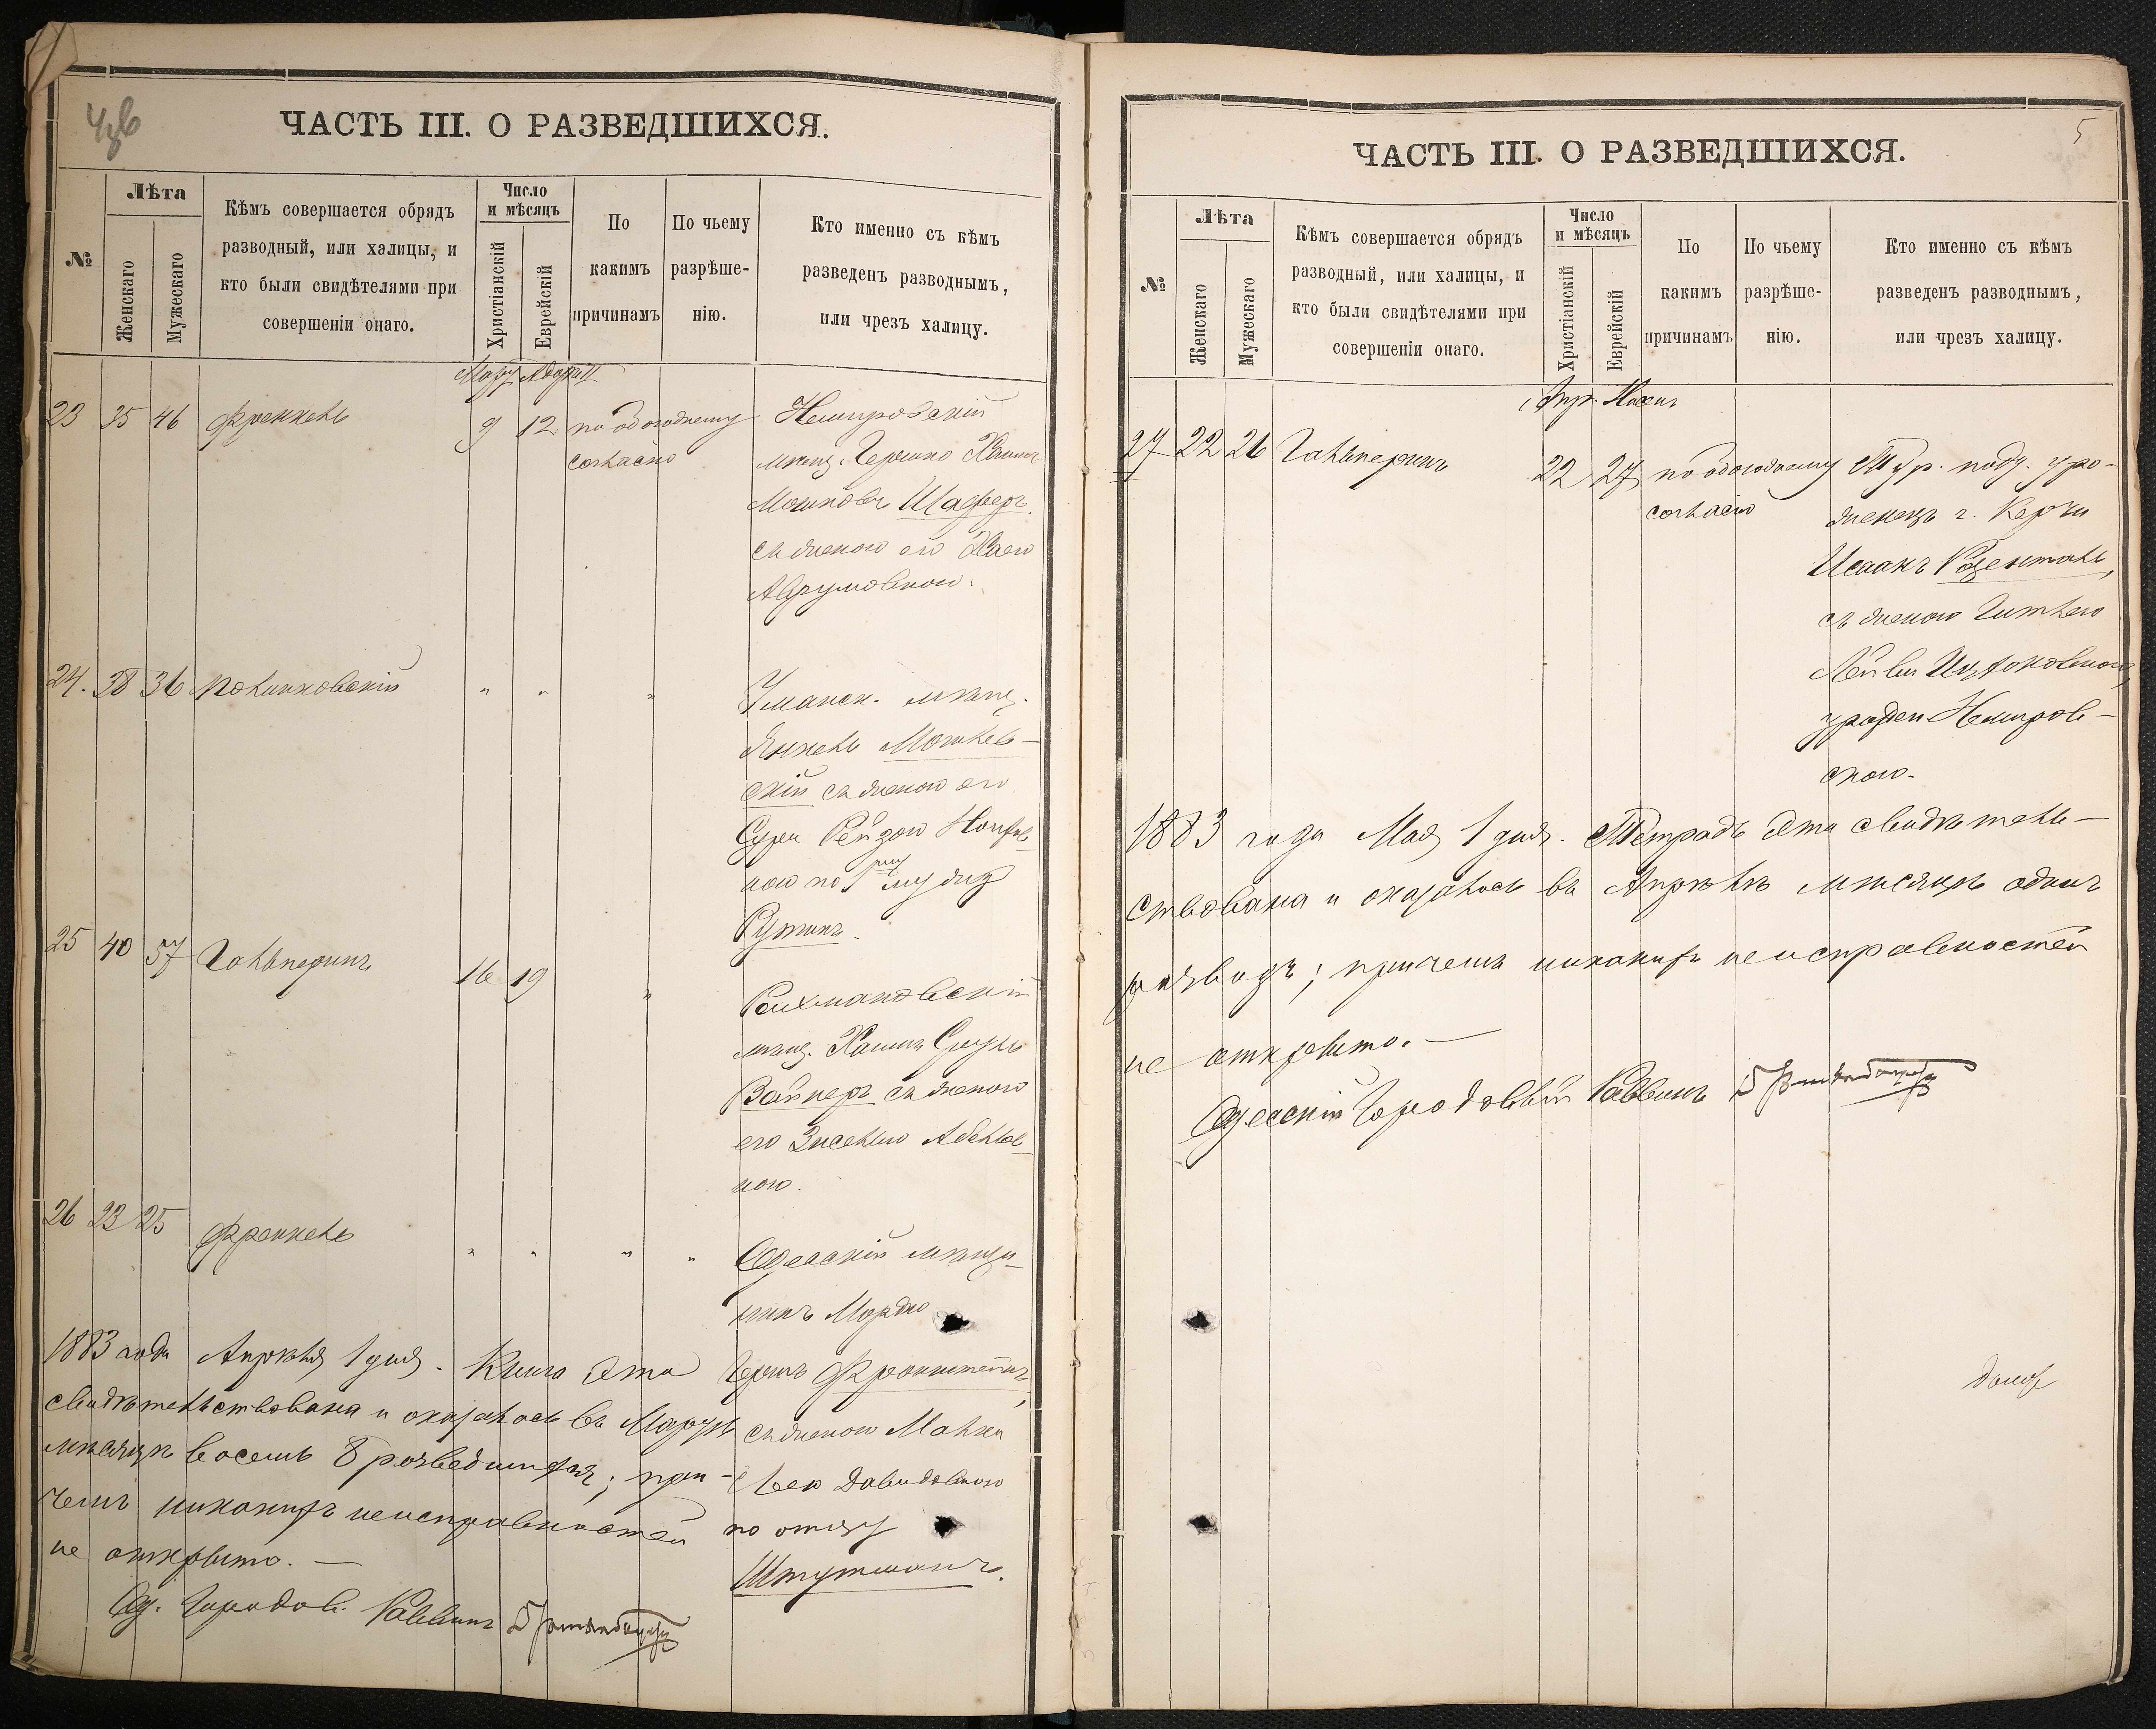 ЧАСТЬ III. О РАЗВЕДШИХСЯ.
№
Лѣта
Женскаго
Мужескаго
Кѣмъ совершается обрядъ
разводный, или халицы, и
кто были свидѣтелями при
совершеніи онаго.
Число
и мѣсяцъ
Христіанскій
Еврейскій
По
какимъ
причинамъ
По чьему
разрѣше-
нію.
Кто именно съ кѣмъ
разведенъ разводнымъ,
или чрезъ халицу.
23 35 46 Френкель 9 12 по обоюдному
согласію
Немировскій
мѣщ. Гершко Хаимъ
Мошковъ Шафферъ
съ женою его Хаею
Аврумовною.
24. 38 36 " " "
Уманск. мѣщ.
Янкель
скій съ женою его
Сура Рейзою
ною по
25 40 57 Гальперинъ 16 19 "
Рахмановскій
мѣщ. Хаимъ Сруль
Вайнеръ съ женою
его Абелев
ною.
26 23 25 Френкель " " " "
Одесскій мѣща-
нинъ Мордко
Гершъ
съ женою Малкою
Леею Давидовною
по отцу
Штутманъ.
1883 года Апрѣля 1 дня. Книга эта
свидѣтельствована и оказалось въ Мартѣ
мѣсяцѣ восемь 8 разведшихся; при-
чемъ никакихъ неисправностей
не открыто. —
Од. Городов. Раввинъ
ЧАСТЬ III. О РАЗВЕДШИХСЯ.
5
№
Лѣта
Женскаго
Мужескаго
Кѣмъ совершается обрядъ
разводный, или халицы, и
кто были свидѣтелями при
совершеніи онаго.
Число
и мѣсяцъ
Христіанскій
Еврейскій
По
какимъ
причинамъ
По чьему
разрѣше-
нію.
Кто именно съ кѣмъ
разведенъ разводнымъ,
или чрезъ халицу.
Апр. Нисанъ
27 22 26 Гальперинъ 22 27 по обоюдному
согласію
Тур. подд. уро-
женецъ г. Керчи
Исаакъ Розенталь,
съ женою Гитлею
Лейви Ицковною,
урожден. Немиров-
скою.
1883 года Мая 1 дня. Тетрадь эта свидѣтель-
ствована и оказалось въ Апрѣлѣ мѣсяцѣ одинъ
разводъ; причемъ никакихъ неисправностей
не открыто. —
Одесскій Городовый Раввинъ